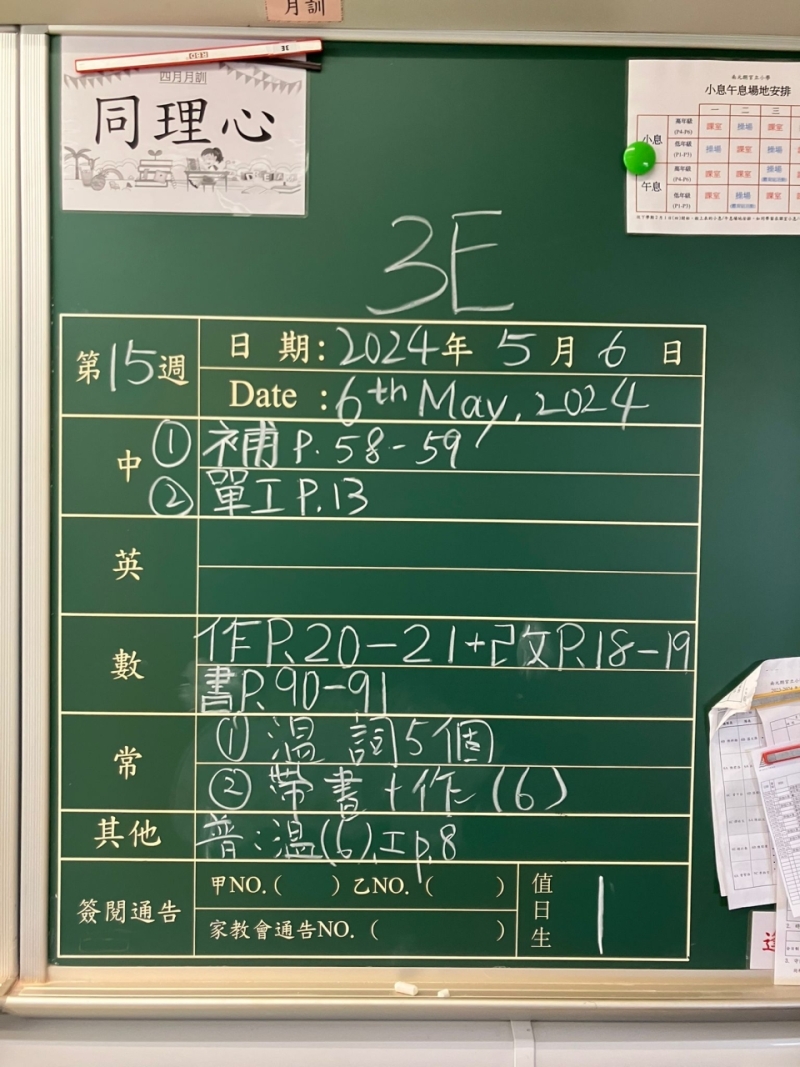 月訓
四月月訓
同理心
小息午息場地安排
一 二 三
小息 高年級 (P4-P6) 課室 操場 課室
低年級 (P1-P3) 操場 課室 操場
午息 高年級 (P4-P6) 課室 課室 操場
低年級 (P1-P3) 課室 操場 課室
3E
第15週 日期:2024年5月6日
Date :6th May, 2024
中 ① 補P.58-59
② 單工P.13
英
數 作P.20-21+改P.18-19
書P.90-91
常 ① 溫 詞5個
② 帶書+作(6)
其他 普:溫(6),工p.8
簽閱通告 甲NO.( ) 乙NO.( )
家教會通告NO.( )
值日生 1